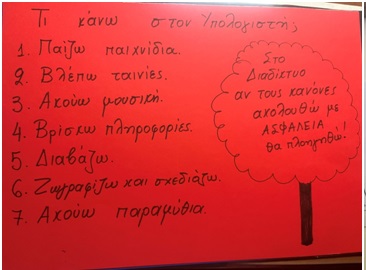 Τι κάνω στον Υπολογιστής
1. Παίζω παιχνίδια.
2. Βλέπω ταινίες.
3. Ακούω μουσική.
4. Βρίσκω πληροφορίες.
5. Διαβάζω.
6. Ζωγραφίζω και σχεδιάζω.
7. Ακούω παραμύθια.
Στο
Διαδίκτυο
αν τους κανόνες
ακολουθώ με
ΑΣΦΑΛΕΙΑ
θα πλοηγηθώ!